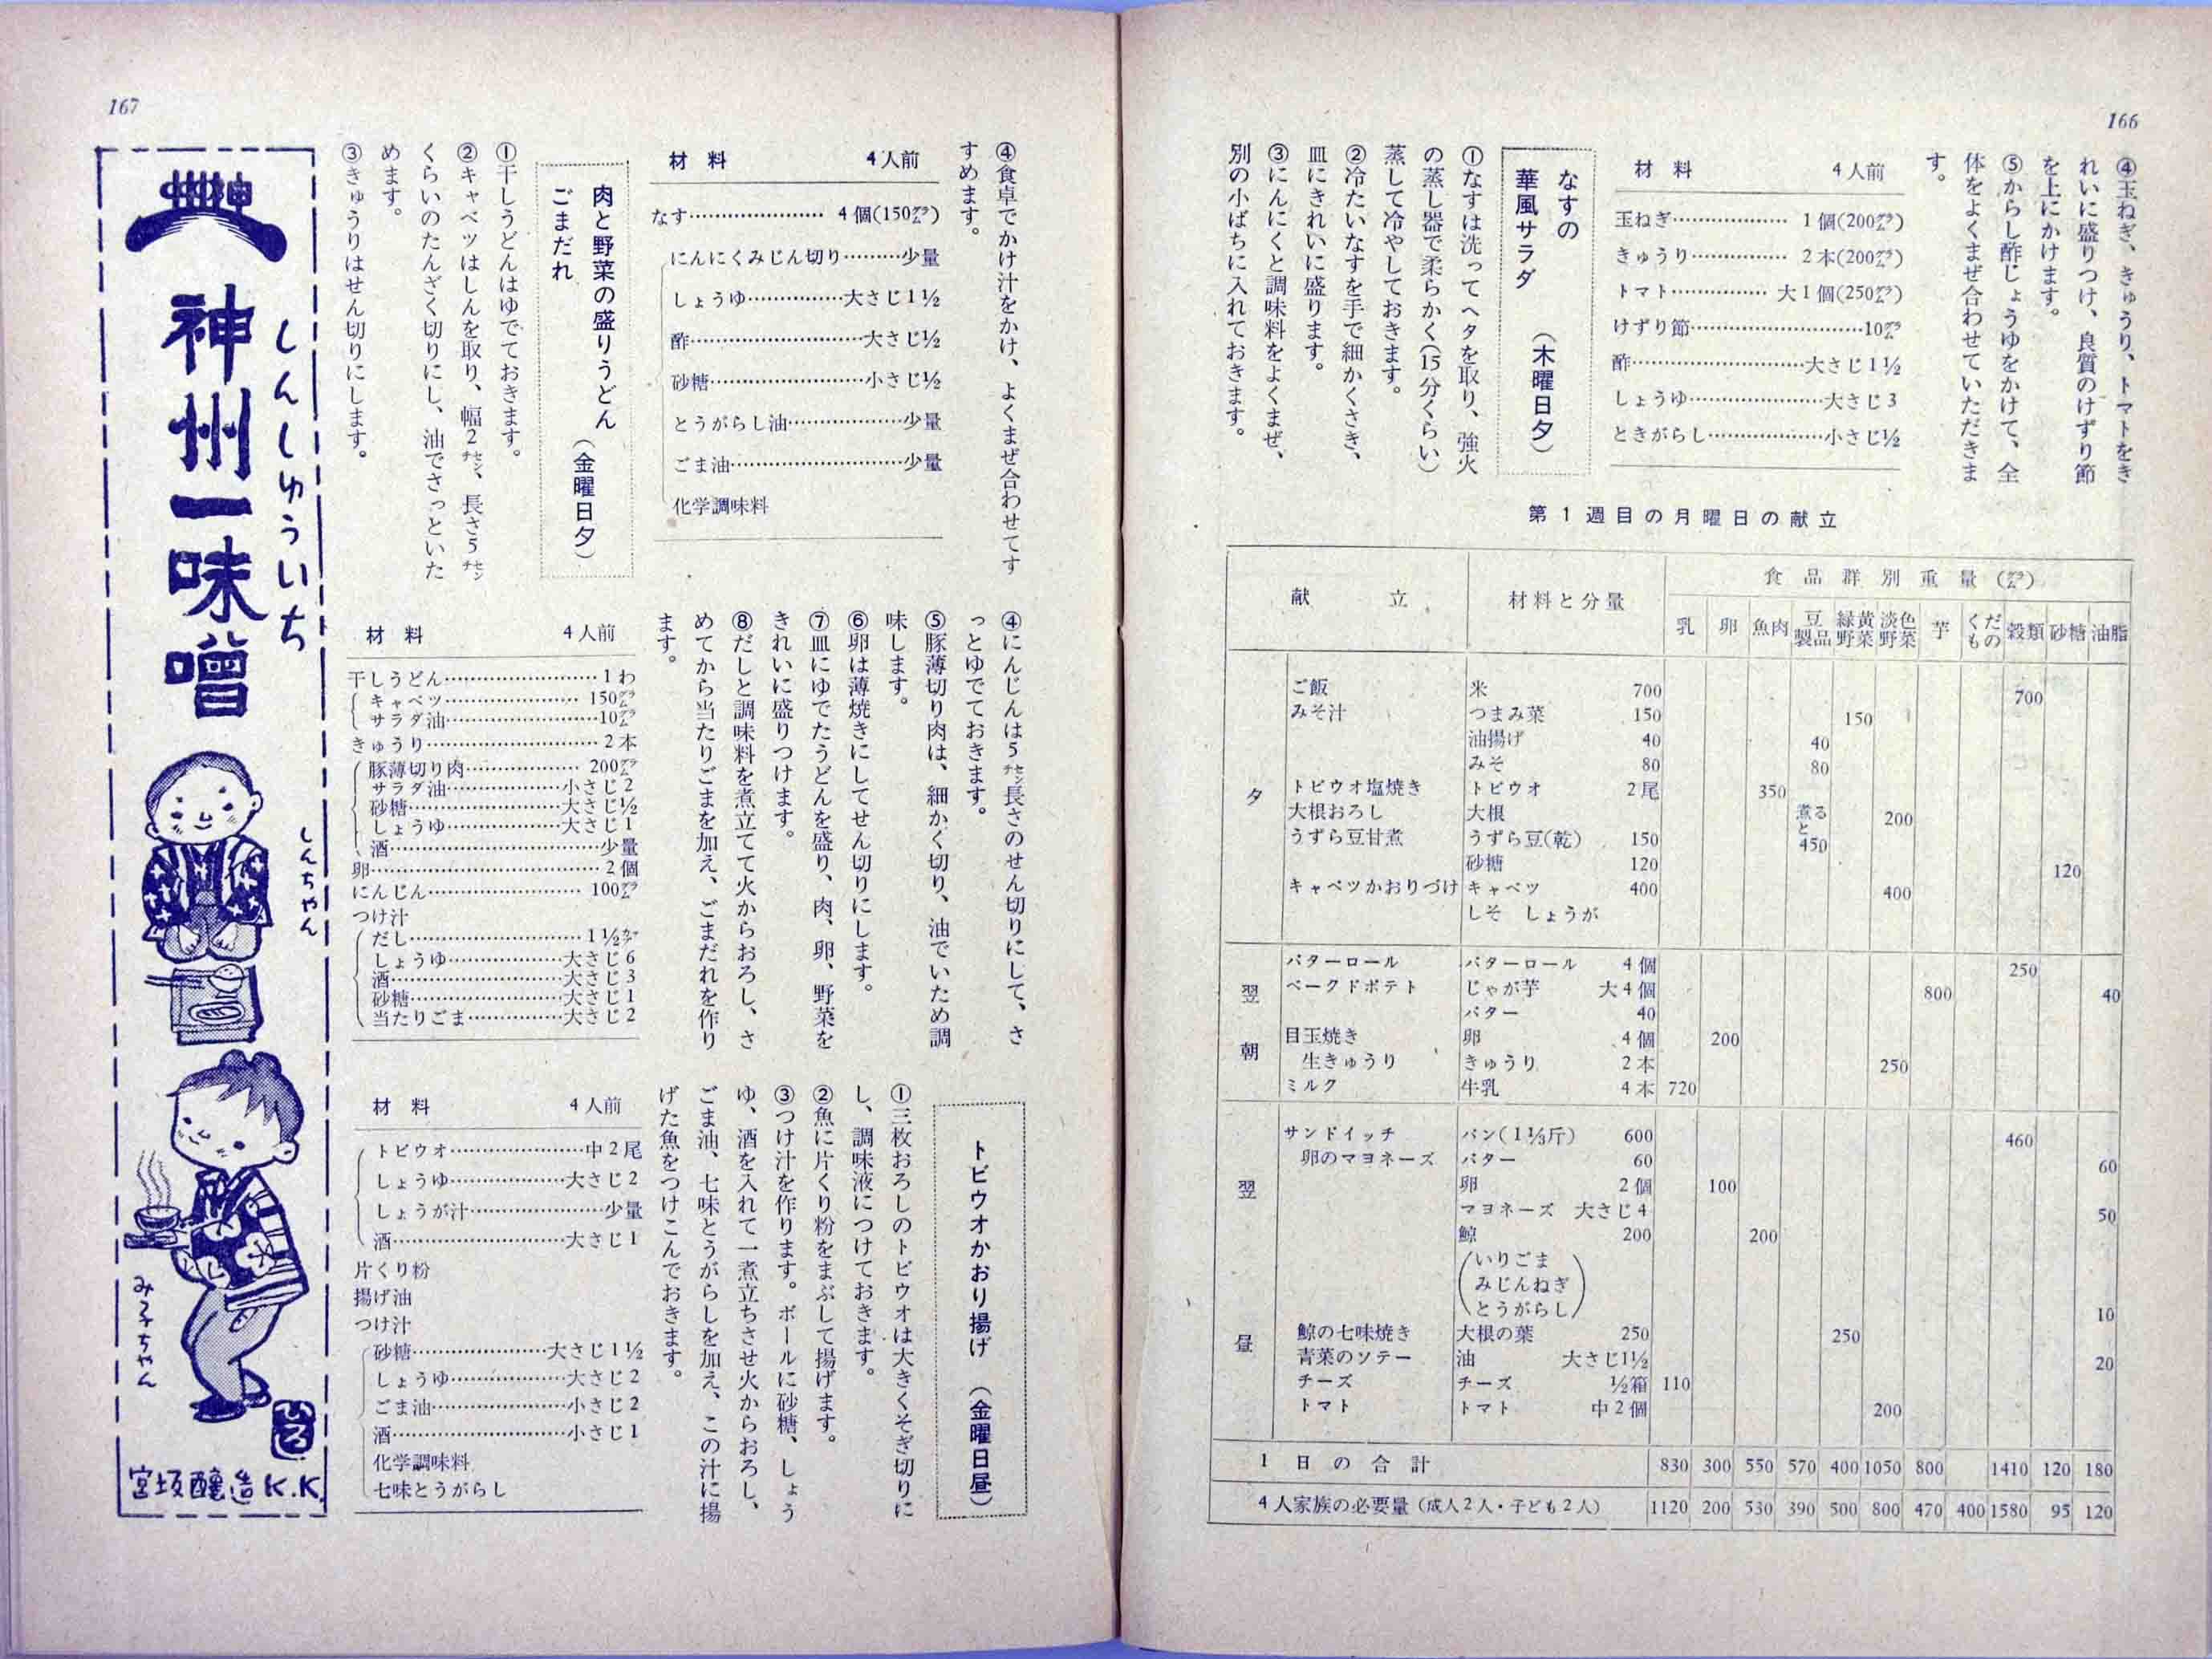 166
④玉ねぎ、きゅうり、トマトをき
れいに盛りつけ、良質のけずり節
を上にかけます。
⑤からし酢じょうゆをかけて、全
体をよくまぜ合わせていただきま
す。
材料 4人前
玉ねぎ………………1個(200㌘)
きゅうり……………2本(200㌘)
トマト……………大1個(250㌘)
けずり節………………………10㌘
酢………………………大さじ1½
しょうゆ…………………大さじ3
ときがらし………………小さじ½
なすの
華風サラダ (木曜日夕)
①なすは洗ってヘタを取り、強火
の蒸し器で柔らかく(15分くらい)
蒸して冷やしておきます。
②冷たいなすを手で細かくさき、
皿にきれいに盛ります。
③にんにくと調味料をよくまぜ、
別の小ばちに入れておきます。
第1週目の月曜日の献立
献立 材料と分量 食品群別重量(㌘)
乳 卵 魚肉 豆製品 緑黄野菜 淡色野菜 芋 くだもの 穀類 砂糖 油脂
夕
ご飯 米 700 700
みそ汁 つまみ菜 150 150
油揚げ 40 40
みそ 80 80
トビウオ塩焼き トビウオ 2尾 350
大根おろし 大根 200
うずら豆甘煮 うずら豆(乾) 150 煮ると450
砂糖 120 120
キャベツかおりづけ キャベツ 400 400
しそ しょうが
翌朝
バターロール バターロール 4個 250
ベークドポテト じゃが芋 大4個 800
バター 40 40
目玉焼き 卵 4個 200
生きゅうり きゅうり 2本 250
ミルク 牛乳 4本 720
翌昼
サンドイッチ パン(1⅓斤) 600 460
卵のマヨネーズ バター 60 60
卵 2個 100
マヨネーズ 大さじ4 50
鯨 200 200
(いりごま
みじんねぎ
とうがらし) 10
鯨の七味焼き 大根の葉 250 250
青菜のソテー 油 大さじ1½ 20
チーズ チーズ ½箱 110
トマト トマト 中2個 200
1日の合計 830 300 550 570 400 1050 800 1410 120 180
4人家族の必要量(成人2人・子ども2人) 1120 200 530 390 500 800 470 400 1580 95 120
167
④食卓でかけ汁をかけ、よくまぜ合わせてす
すめます。
材料 4人前
なす…………………4個(150㌘)
にんにくみじん切り………少量
しょうゆ……………大さじ1½
酢………………………大さじ½
砂糖……………………小さじ½
とうがらし油………………少量
ごま油………………………少量
化学調味料
肉と野菜の盛りうどん
ごまだれ (金曜日夕)
①干しうどんはゆでておきます。
②キャベツはしんを取り、幅2㌢、長さ5㌢
くらいのたんざく切りにし、油でさっといた
めます。
③きゅうりはせん切りにします。
④にんじんは5㌢長さのせん切りにして、さ
っとゆでておきます。
⑤豚薄切り肉は、細かく切り、油でいため調
味します。
⑥卵は薄焼きにしてせん切りにします。
⑦皿にゆでたうどんを盛り、肉、卵、野菜を
きれいに盛りつけます。
⑧だしと調味料を煮立てて火からおろし、さ
めてから当たりごまを加え、ごまだれを作り
ます。
材料 4人前
干しうどん……………………1わ
キャベツ…………………150㌘
サラダ油……………………10㌘
きゅうり………………………2本
豚薄切り肉………………200㌘
サラダ油………………小さじ2
砂糖……………………大さじ½
しょうゆ………………大さじ1
酒……………………………少量
卵………………………………2個
にんじん……………………100㌘
つけ汁
だし………………………1½㌍
しょうゆ………………大さじ6
酒………………………大さじ3
砂糖……………………大さじ1
当たりごま……………大さじ2
トビウオかおり揚げ (金曜日昼)
①三枚おろしのトビウオは大きくそぎ切りに
し、調味液につけておきます。
②魚に片くり粉をまぶして揚げます。
③つけ汁を作ります。ボールに砂糖、しょう
ゆ、酒を入れて一煮立ちさせ火からおろし、
ごま油、七味とうがらしを加え、この汁に揚
げた魚をつけこんでおきます。
材料 4人前
トビウオ…………………中2尾
しょうゆ………………大さじ2
しょうが汁…………………少量
酒………………………大さじ1
片くり粉
揚げ油
つけ汁
砂糖…………………大さじ1½
しょうゆ………………大さじ2
ごま油…………………小さじ2
酒………………………小さじ1
化学調味料
七味とうがらし
しんしゅういち
神州一味噌
しんちゃん
みこちゃん
ひろし
宮坂醸造K.K.